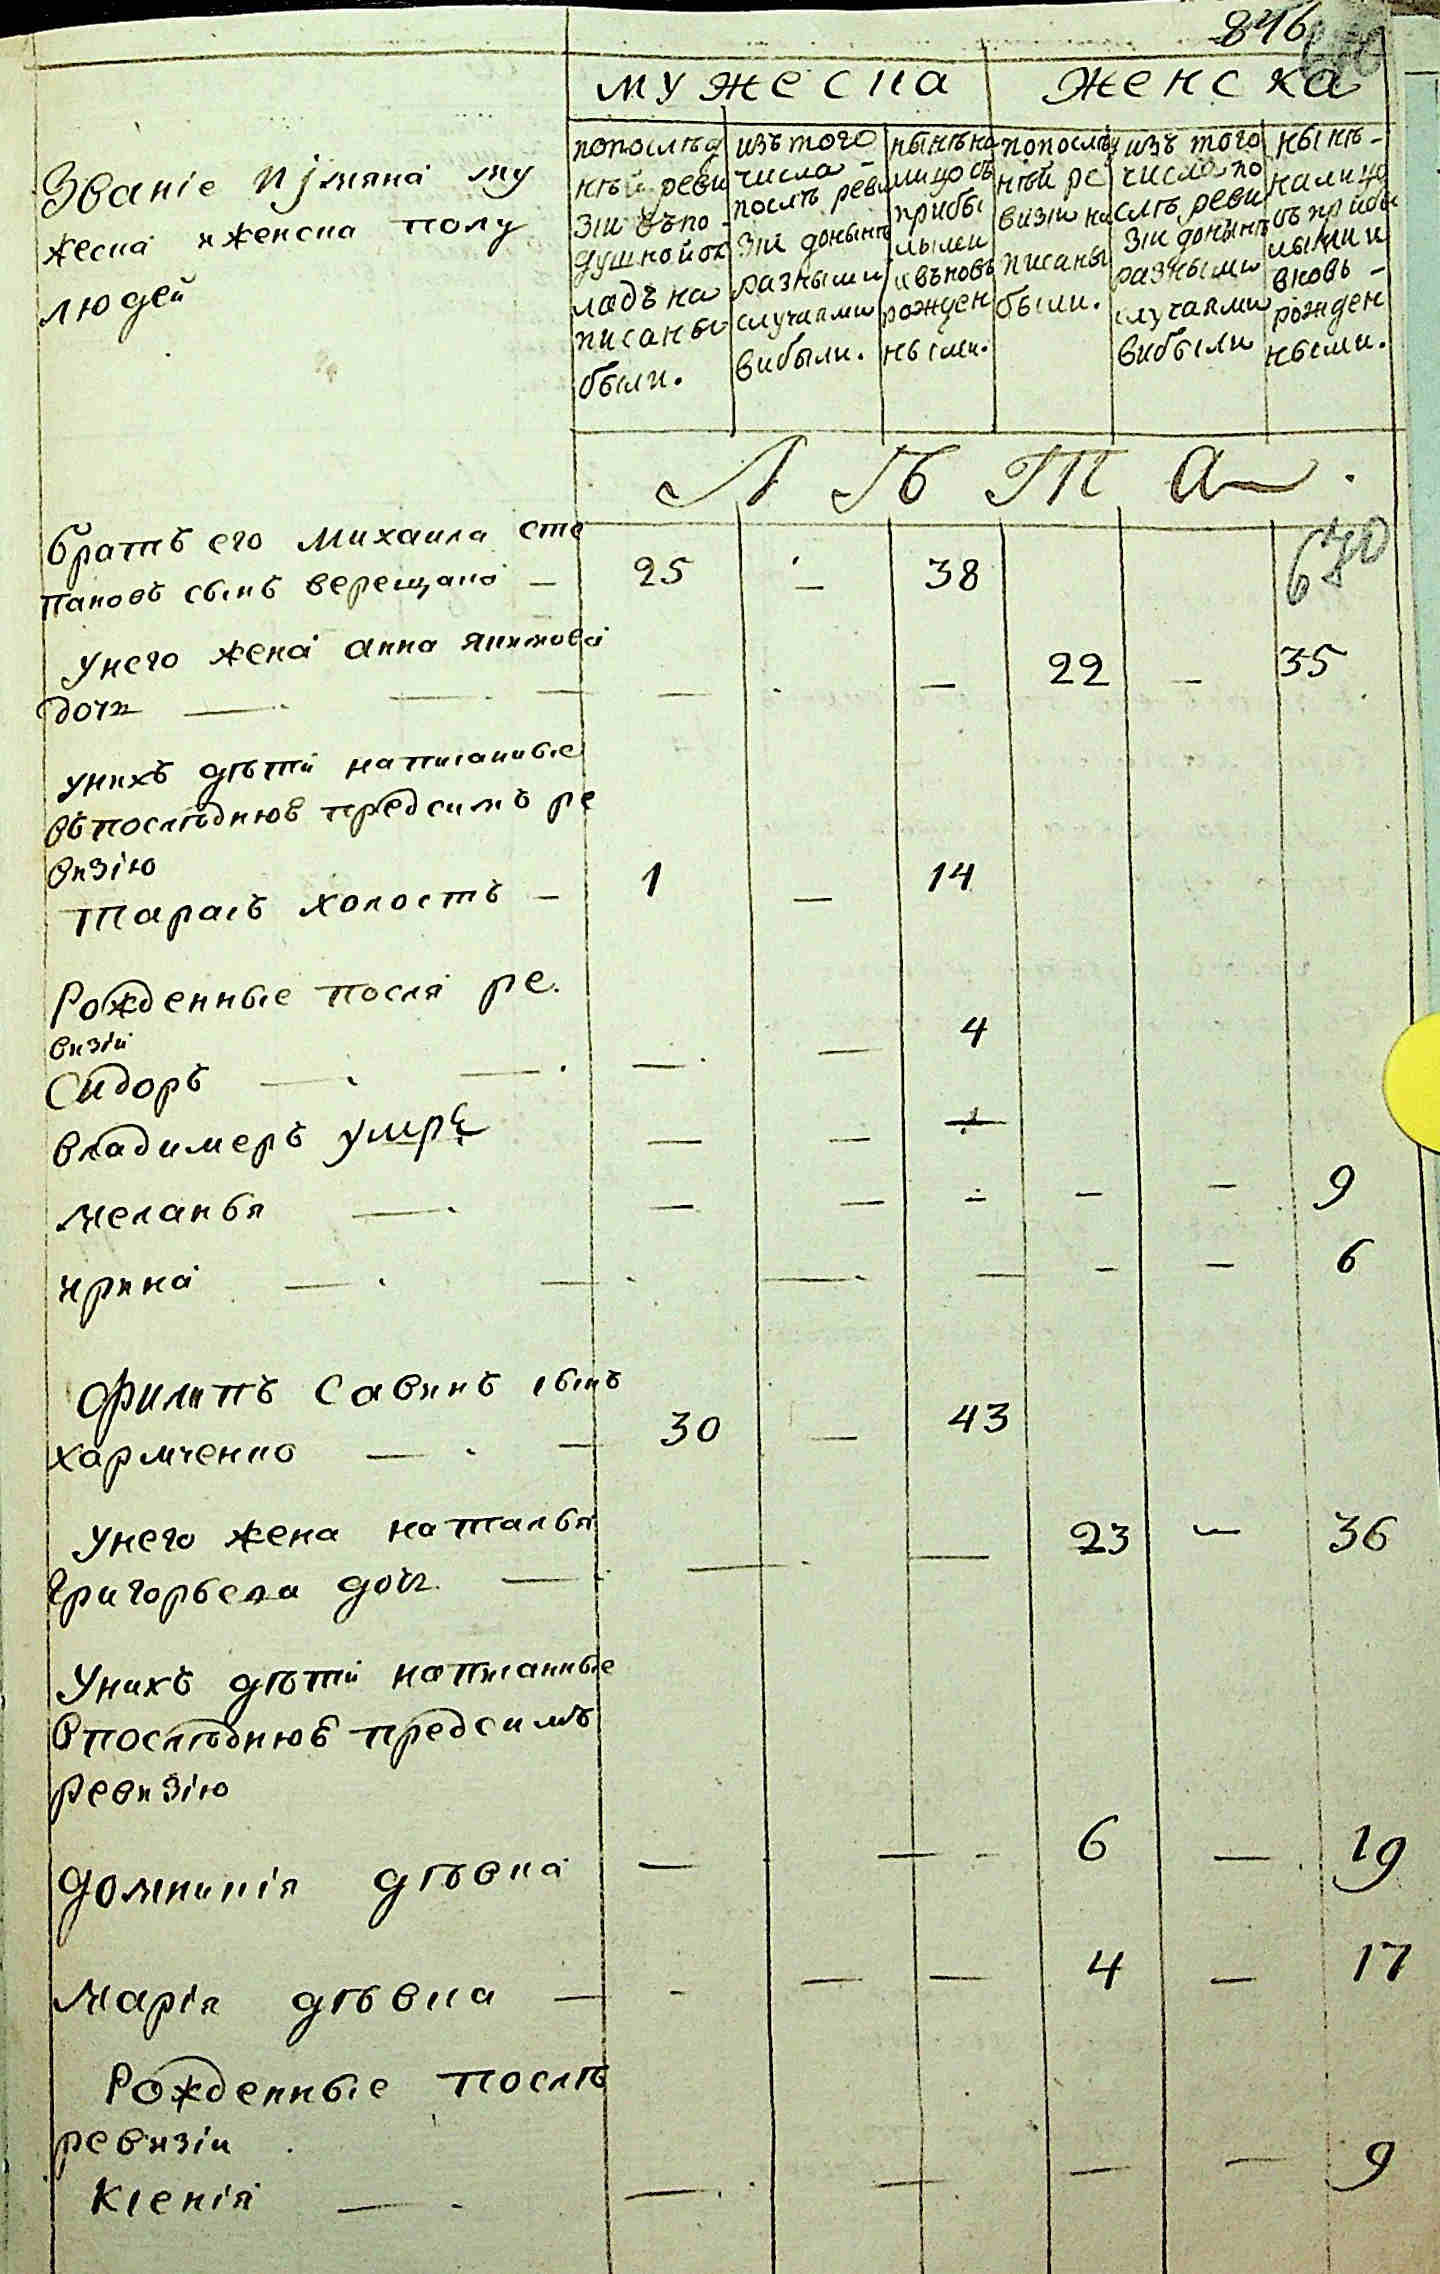 846
мужеска женска
Званіе иjмяна му
жеска и женска полу
людей
попослед
ней реви
зіи въ по
душной ок
ладъ на
писаны
были.
изъ того
числа
послѣ реви
зіи донынѣ
разными
случаями
выбыли.
нынѣ на
лицо съ
прибы
лыми
и въновь
рожден
ными.
попослед
ней ре
визіи на
писаны
были.
изъ того
числа по
слѣ реви
зіи донынѣ
разными
случаями
выбыли
нынѣ
на лицо
съ прибы
лыми и
вновь
рожден
ными.
Лѣта.
братъ его михаила сте
пановъ сынъ верещака — 25 — 38
670
у него жена анна якимова
дочь — — — — 22 — 35
у нихъ дѣти написанные
въ последнюю предсимъ ре
визію
тарасъ холостъ — 1 — 14
Рожденные посля ре
визіи
Сидоръ — — — — 4
владимеръ умре — —
меланья — — — — — — 9
ирина — — — — — — 6
Филипъ Савинъ сынъ
харченко — — 30 — 43
у него жена наталья
григорьева дочь — — — 23 — 36
У нихъ дѣти написанные
в последнюю предсимъ
ревизію
домникія дѣвка — — - 6 — 19
марія дѣвка — - — — 4 — 17
Рожденные послѣ
ревизіи
Ксенія — — — — — 9